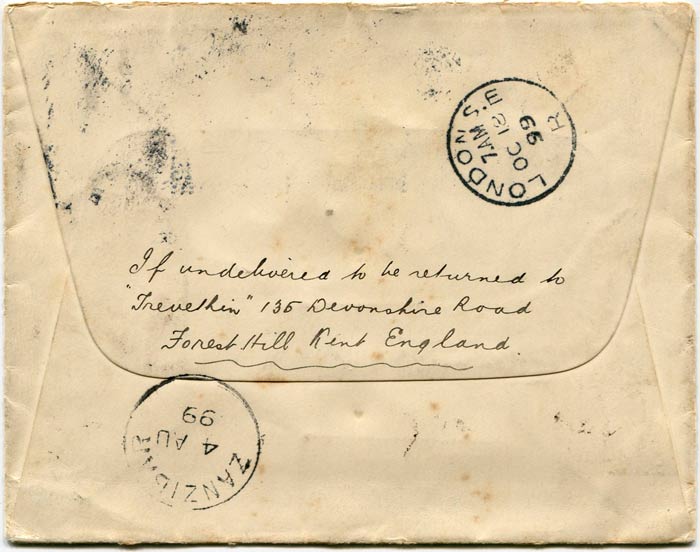 LONDON S.E.
7 AM
OC 18
99
R
If undelivered to be returned to
"Trevethin" 135 Devonshire Road
Forest Hill Kent England.
ZANZIBAR
4 AU
99